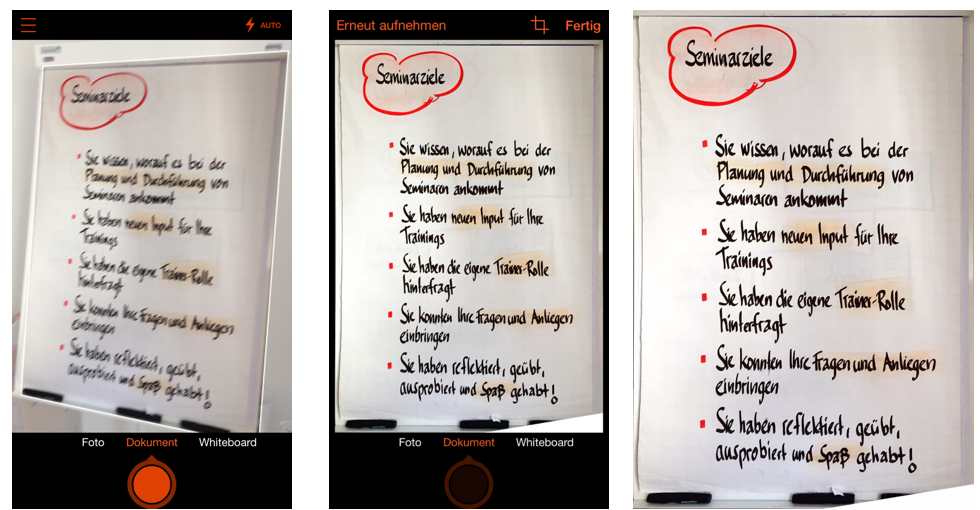 AUTO
Seminarziele
Sie wissen, worauf es bei der
Planung und Durchführung von
Seminaren ankommt
Sie haben neuen Input für Ihre
Trainings
Sie haben die eigene Trainer-Rolle
hinterfragt
Sie konnten Ihre Fragen und Anliegen
einbringen
Sie haben reflektiert, geübt,
ausprobiert und Spaß gehabt!
Foto Dokument Whiteboard
Erneut aufnehmen Fertig
Seminarziele
Sie wissen, worauf es bei der
Planung und Durchführung von
Seminaren ankommt
Sie haben neuen Input für Ihre
Trainings
Sie haben die eigene Trainer-Rolle
hinterfragt
Sie konnten Ihre Fragen und Anliegen
einbringen
Sie haben reflektiert, geübt,
ausprobiert und Spaß gehabt!
Foto Dokument Whiteboard
Seminarziele
Sie wissen, worauf es bei der
Planung und Durchführung von
Seminaren ankommt
Sie haben neuen Input für Ihre
Trainings
Sie haben die eigene Trainer-Rolle
hinterfragt
Sie konnten Ihre Fragen und Anliegen
einbringen
Sie haben reflektiert, geübt,
ausprobiert und Spaß gehabt!